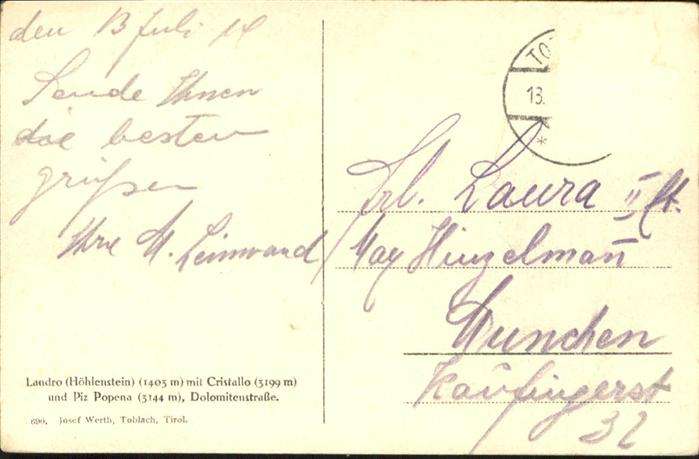 den 13 Juli 14
Sende Ihnen
die besten
grüßen
Ihre M. Leinwand
Landro (Höhlenstein) (1403 m) mit Cristallo (3199 m)
und Piz Popena (3144 m), Dolomitenstraße.
690. Josef Werth, Toblach, Tirol.
TO
13.
*
Frl. Laura II
May Hinzelman̄
Munchen
Kaufingerst
32